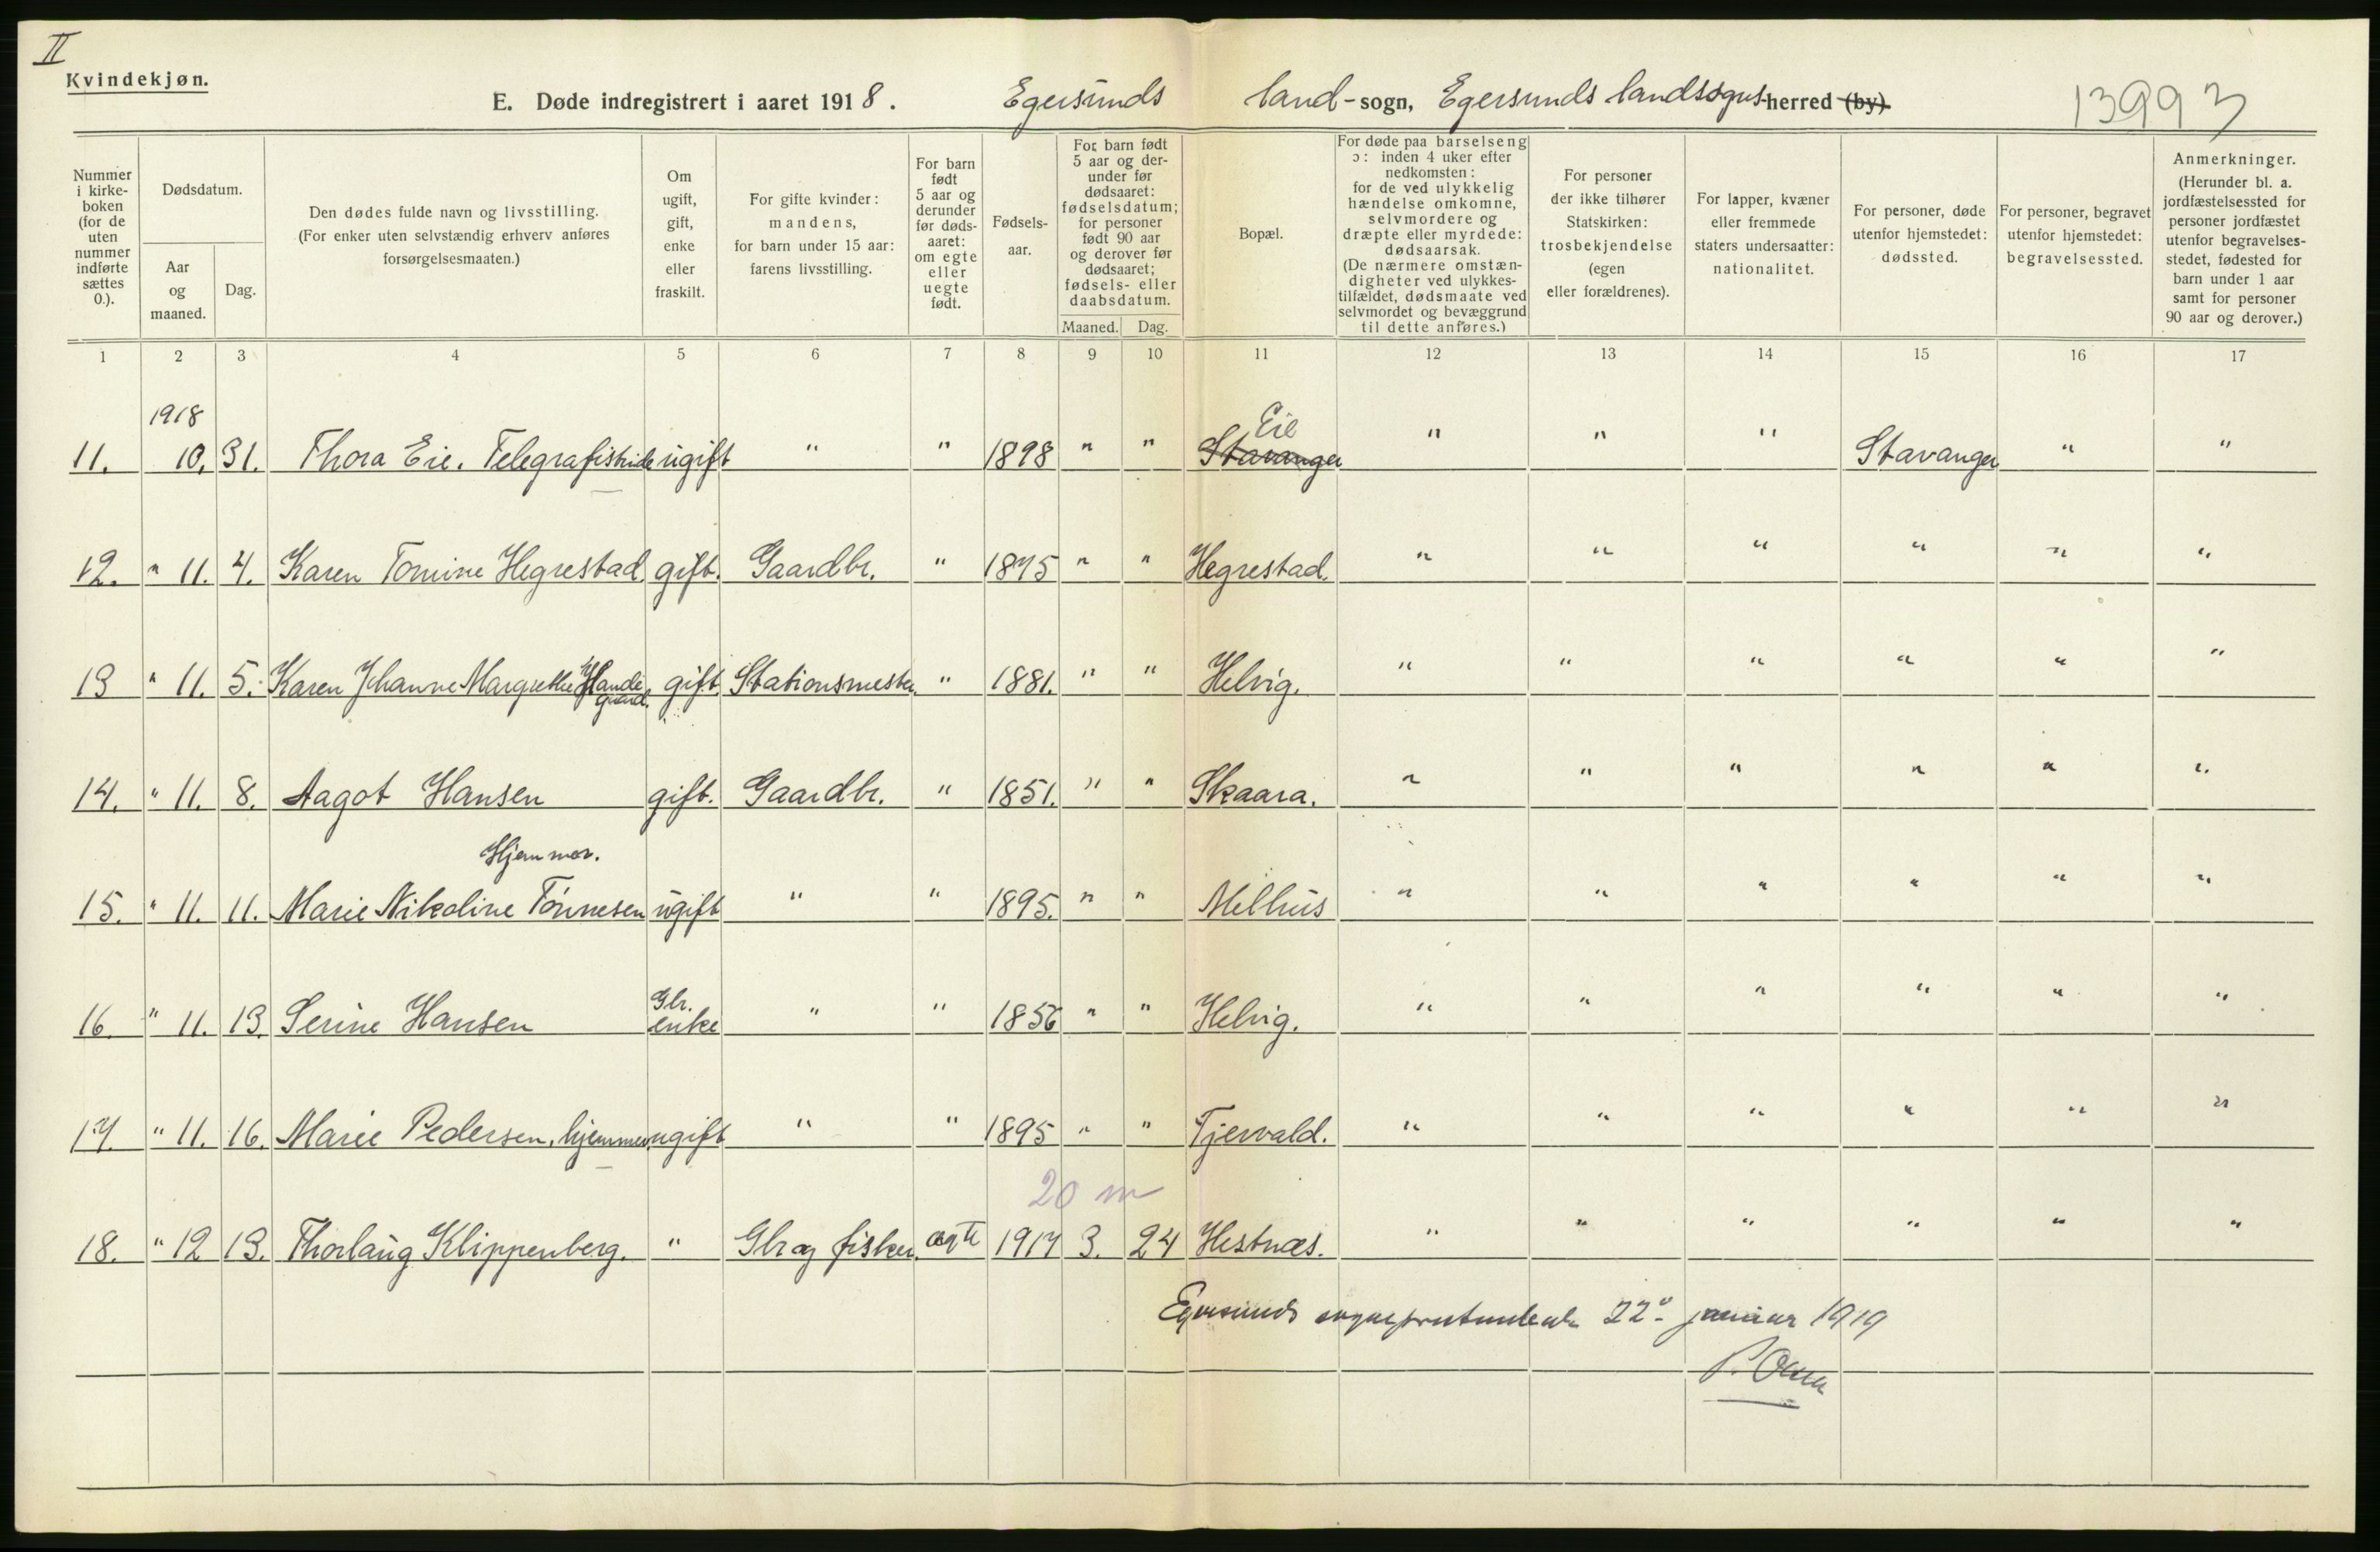 II
Kvindekjøn.
E. Døde indregistrert i aaret 1918. Egersunds land-sogn, Egersunds landsogns herred (by). 13993
Nummer i kirkeboken (for de uten nummer indførte sættes 0.).
Dødsdatum.
Aar og maaned.
Dag.
Den dødes fulde navn og livsstilling. (For enker uten selvstændig erhverv anføres forsørgelsesmaaten.)
Om ugift, gift, enke eller fraskilt.
For gifte kvinder: mandens, for barn under 15 aar: farens livsstilling.
For barn født 5 aar og derunder før dødsaaret: om egte eller uegte født.
Fødselsaar.
For barn født 5 aar og derunder før dødsaaret: fødselsdatum; for personer født 90 aar og derover før dødsaaret; fødsels- eller daabsdatum.
Maaned. Dag.
Bopæl.
For døde paa barselseng ɔ: inden 4 uker efter nedkomsten: for de ved ulykkelig hændelse omkomne, selvmordere og dræpte eller myrdede: dødsaarsak. (De nærmere omstændigheter ved ulykkestilfældet, dødsmaate ved selvmordet og bevæggrund til dette anføres.)
For personer der ikke tilhører Statskirken: trosbekjendelse (egen eller forældrenes).
For lapper, kvæner eller fremmede staters undersaatter: nationalitet.
For personer, døde utenfor hjemstedet: dødssted.
For personer, begravet utenfor hjemstedet: begravelsessted.
Anmerkninger. (Herunder bl. a. jordfæstelsessted for personer jordfæstet utenfor begravelsesstedet, fødested for barn under 1 aar samt for personer 90 aar og derover.)
1 2 3 4 5 6 7 8 9 10 11 12 13 14 15 16 17
1918 Eie
11. 10. 31. Thora Eie. Telegrafistinde ugift " " 1898 " " Stavanger " " " Stavanger " "
12. " 11. 4. Karen Tomine Hegrestad. gift. Gaardbr. " 1875 " " Hegrestad. " " " " " "
13 " 11. 5. Karen Johanne Margrethe Handegaard. gift. Stationsmester. " 1881. " " Helvig. " " " " " "
14. " 11. 8. Aagot Hansen gift. Gaardbr. " 1851. " " Skaara. " " " " " "
Hjemmev.
15. " 11. 11. Marie Nikoline Tönnesen ugift " " 1895. " " Melhus " " " " " "
Gbr.
16. " 11. 13. Serine Hansen enke " " 1856 " " Helvig. " " " " " "
17. " 11. 16. Marie Pedersen, hjemmev. ugift " " 1895 " " Tjervald. " " " " " "
20 m
18. " 12 13. Thorlaug Klippenberg. " Gbr og fisker. ægte 1917 3. 24 Hestnæs. " " " " " "
Egersunds 22. januar 1919